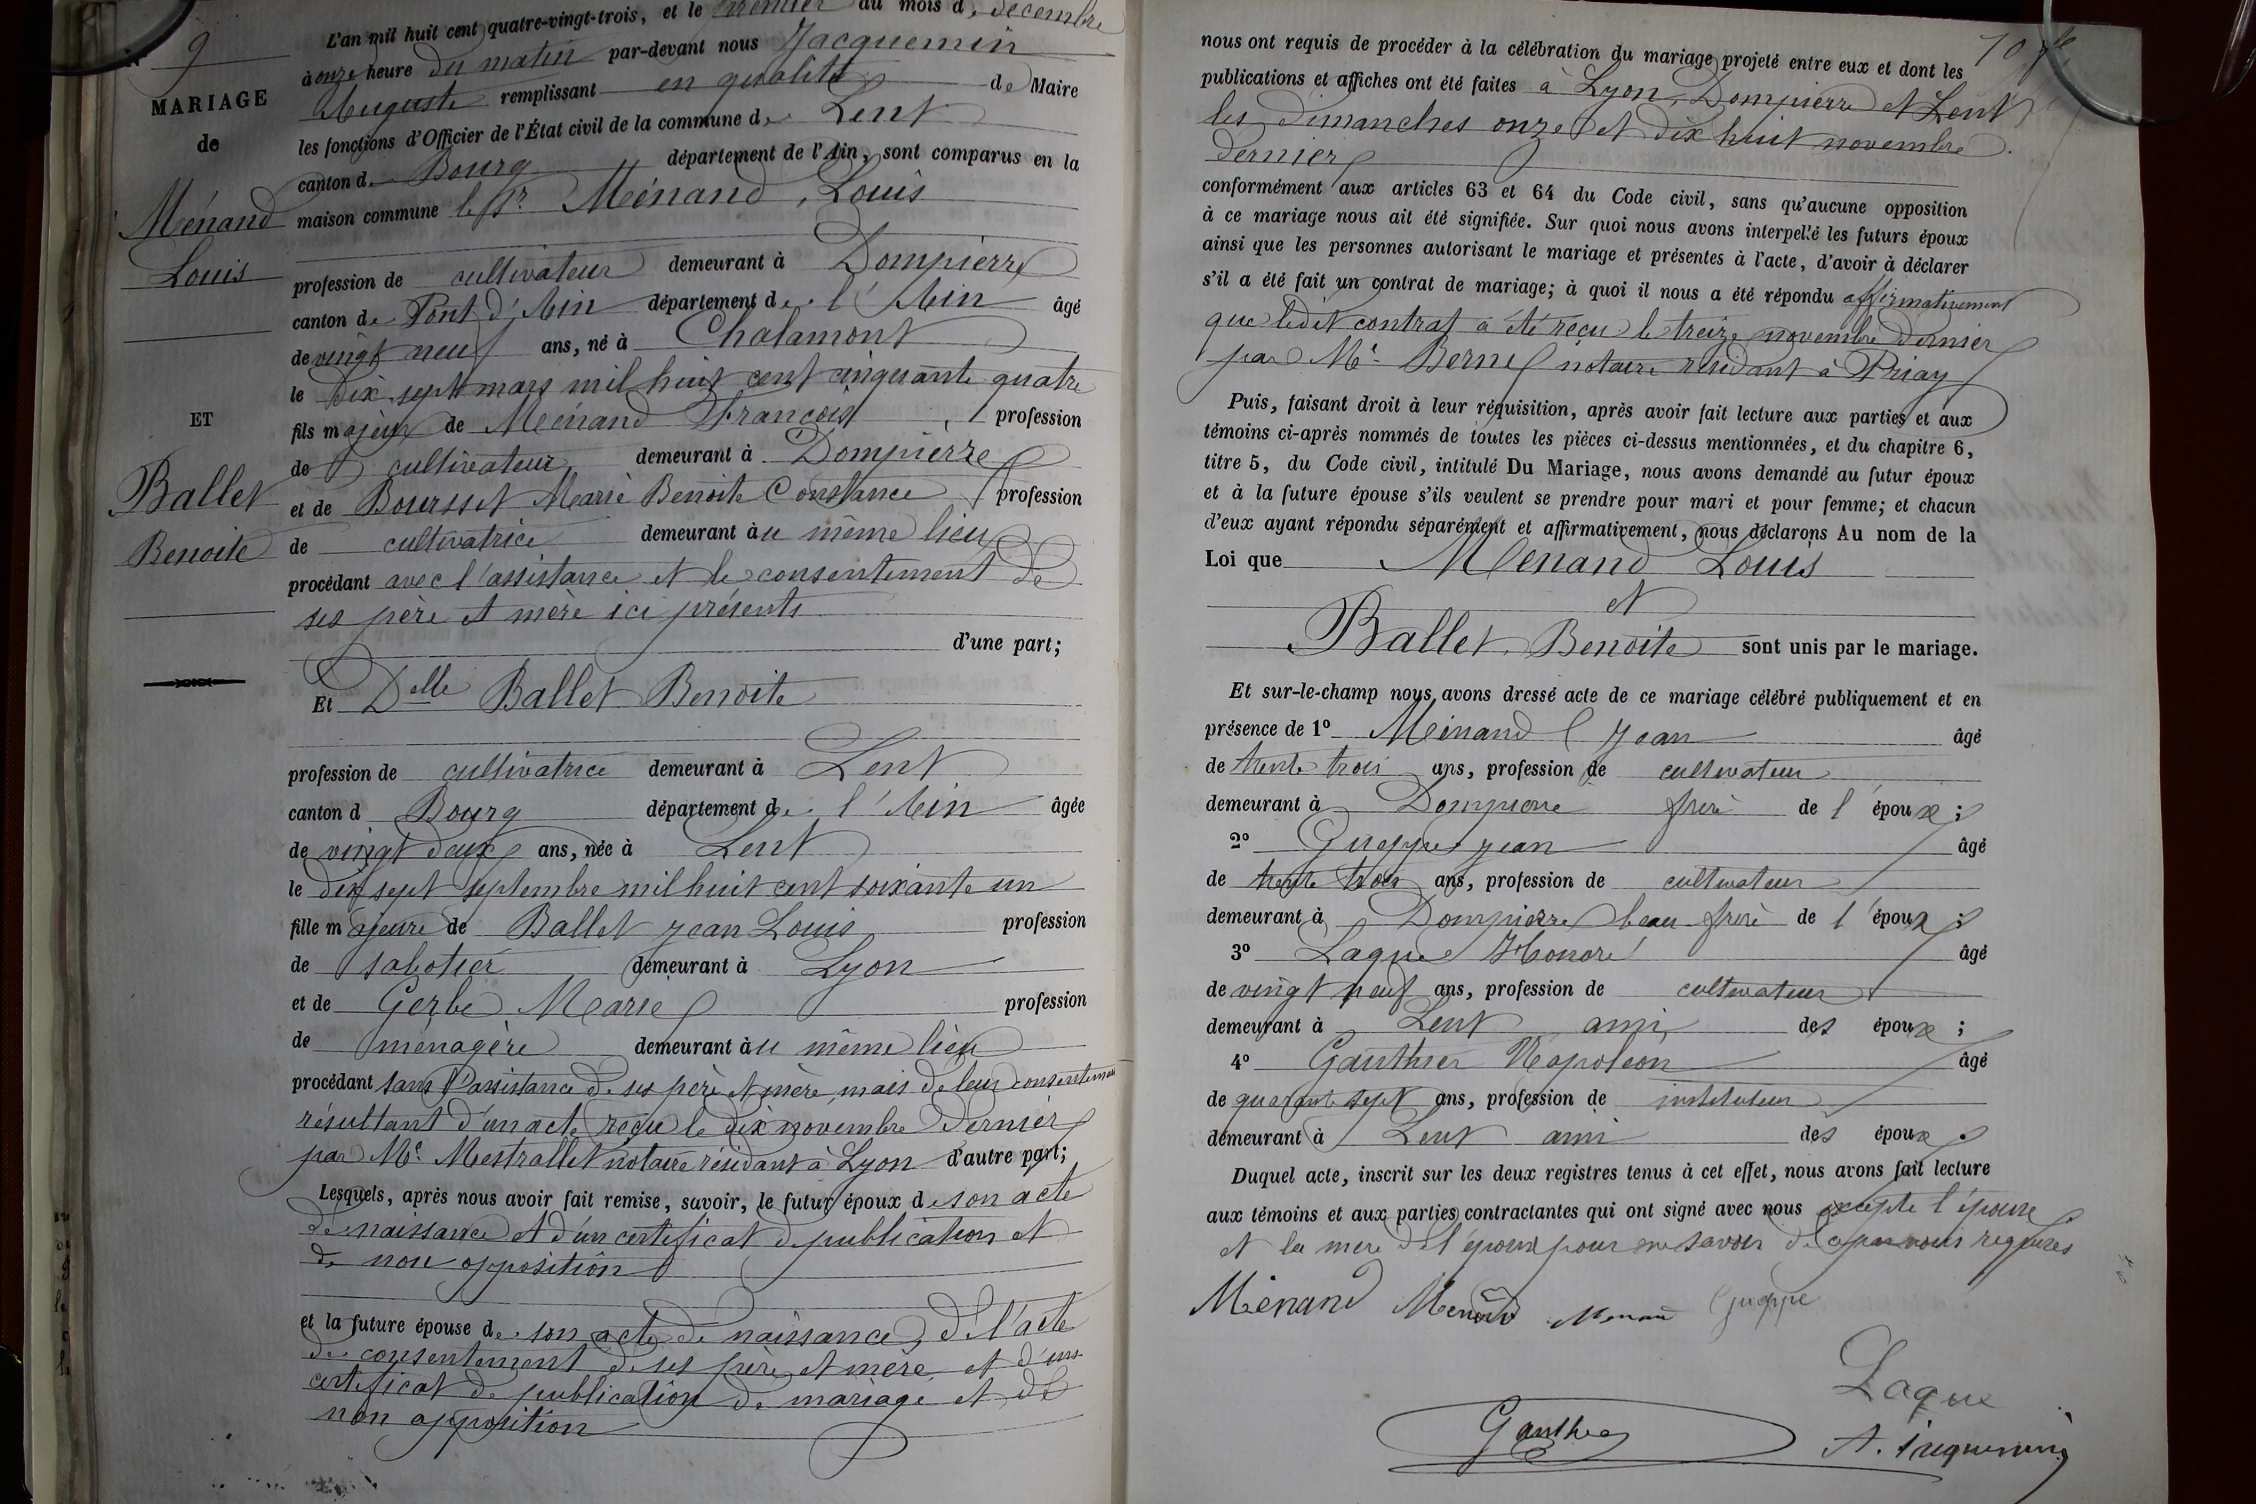 9
MARIAGE
de
Ménand
Louis
ET
Ballet
Benoite
L'an mil huit cent quatre-vingt-trois, et le premier du mois de décembre
à onze heure du matin par-devant nous Jacquemin
Auguste remplissant en qualité de Maire
les fonctions d'Officier de l'État civil de la commune de Lent
canton de Bourg département de l'Ain, sont comparus en la
maison commune le Sr Ménand, Louis
profession de cultivateur demeurant à Dompierre
canton de Pont d'Ain département de l'Ain âgé
de vingt neuf ans, né à Chalamont
le dix sept mars mil huit cent cinquante quatre
fils majeur de Ménand François profession
de cultivateur demeurant à Dompierre
et de Boursset Marie Benoite Constance profession
de cultivatrice demeurant au même lieu
procédant avec l'assistance et le consentement de
ses père et mère ici présents
d'une part;
Et Delle Ballet Benoite
profession de cultivatrice demeurant à Lent
canton d Bourg département de l'Ain âgée
de vingt deux ans, née à Lent
le dix sept septembre mil huit cent soixante un
fille majeure de Ballet Jean Louis profession
de sabotier demeurant à Lyon
et de Gerbe Marie profession
de ménagère demeurant au même lieu
procédant sans l'assistance de ses père et mère, mais de leur consentement
résultant d'un acte reçu le dix novembre dernier
par Me Mestrallet notaire résidant à Lyon d'autre part;
Lesquels, après nous avoir fait remise, savoir, le futur époux de son acte
de naissance et d'un certificat de publication et
de non opposition
et la future épouse de son acte de naissance, de l'acte
de consentement de ses père et mère et d'un
certificat de publication de mariage et de
non opposition
nous ont requis de procéder à la célébration du mariage projeté entre eux et dont les
publications et affiches ont été faites à Lyon, Dompierre et Lent
les dimanches onze et dix huit novembre
dernier
conformément aux articles 63 et 64 du Code civil, sans qu'aucune opposition
à ce mariage nous ait été signifiée. Sur quoi nous avons interpellé les futurs époux
ainsi que les personnes autorisant le mariage et présentes à l'acte, d'avoir à déclarer
s'il a été fait un contrat de mariage; à quoi il nous a été répondu affirmativement
que ledit contrat a été reçu le treize novembre dernier
par Me Berne notaire résidant à Priay
Puis, faisant droit à leur réquisition, après avoir fait lecture aux parties et aux
témoins ci-après nommés de toutes les pièces ci-dessus mentionnées, et du chapitre 6,
titre 5, du Code civil, intitulé Du Mariage, nous avons demandé au futur époux
et à la future épouse s'ils veulent se prendre pour mari et pour femme; et chacun
d'eux ayant répondu séparément et affirmativement, nous déclarons Au nom de la
Loi que Menand Louis
et
Ballet, Benoite sont unis par le mariage.
Et sur-le-champ nous avons dressé acte de ce mariage célébré publiquement et en
présence de 1° Ménand Jean âgé
de trente trois ans, profession de cultivateur
demeurant à Dompierre frère de l'époux;
2° Gueppe Jean âgé
de trente trois ans, profession de cultivateur
demeurant à Dompierre beau frère de l'époux;
3° Laque Honoré âgé
de vingt neuf ans, profession de cultivateur
demeurant à Lent ami des époux;
4° Gauthier Napoléon âgé
de quarante sept ans, profession de instituteur
demeurant à Lent ami des époux.
Duquel acte, inscrit sur les deux registres tenus à cet effet, nous avons fait lecture
aux témoins et aux parties contractantes qui ont signé avec nous excepté l'épouse
et la mere de l'époux pour ne savoir de ce par nous requises
Ménand Menand Menand Gueppe
Laque
Gauthier A. Jacquemin